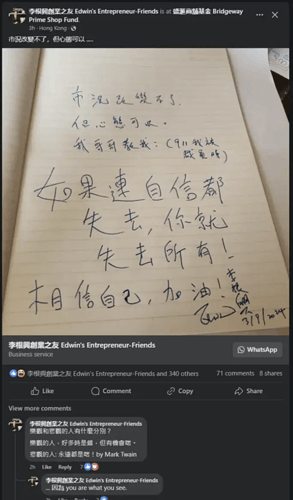 李根興創業之友 Edwin's Entrepreneur-Friends is at 盛滙商舖基金 Bridgeway
Prime Shop Fund.
3h · Hong Kong ·
市況改變不了，但心態可以 ....
市況改變不了
但心態可以。
我哥哥教我：(911我被
裁員時)
如果連自信都
失去，你就
失去所有！
相信自己，加油！
李根興
Edwin
3/7/2024
李根興創業之友 Edwin's Entrepreneur-Friends
Business service
WhatsApp
李根興創業之友 Edwin's Entrepreneur-Friends and 340 others
71 comments 8 shares
Like Comment Copy Share
View more comments
李根興創業之友 Edwin's Entrepreneur-Friends
樂觀和悲觀的人有什麼分別？
樂觀的人，好多時是錯，但有機會啱。
悲觀的人: 永遠都是啱！by Mark Twain
2h Like Reply 7
李根興創業之友 Edwin's Entrepreneur-Friends
you are what you see.